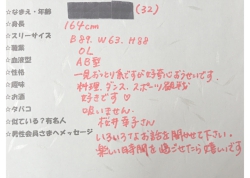 ☆なまえ・年齢 (32)
☆身長 164cm
☆スリーサイズ B.89. W63. H88
☆職業 OL
☆血液型 AB型
☆性格 一見おとり系ですが好奇心おうせいです。
☆趣味 料理、ダンス、スポーツ観戦
☆お酒 好きです♡
☆タバコ 吸いません
☆似ている?有名人
☆男性会員さまへメッセージ
いろいろなお話を聞かせて下さい。
楽しい時間を過ごせたら嬉しいです